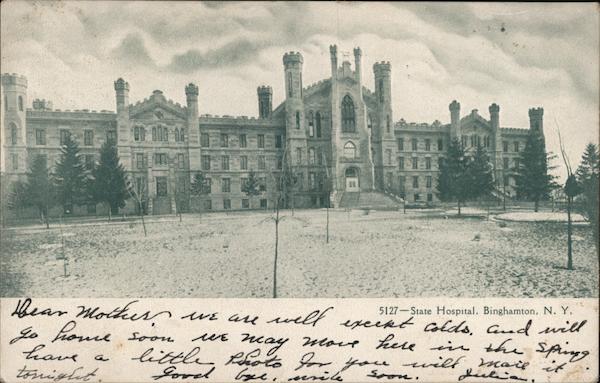 5127—State Hospital, Binghamton, N. Y.
Dear Mother we are well except colds, and will
go home soon we may move here in the spring
have a little Photo for you will mail it
tonight Good bye, write soon. Julia.